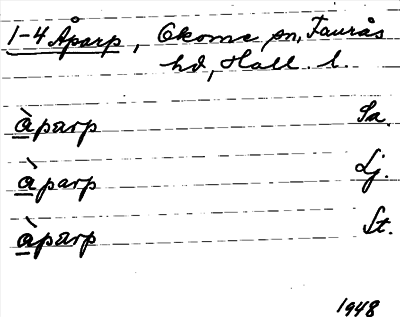 1-4 Åparp, Okome sn, Faurås
hd, Hall. l.
à̲parp Sa.
à̲parp Lj.
à̲parp St.
1948